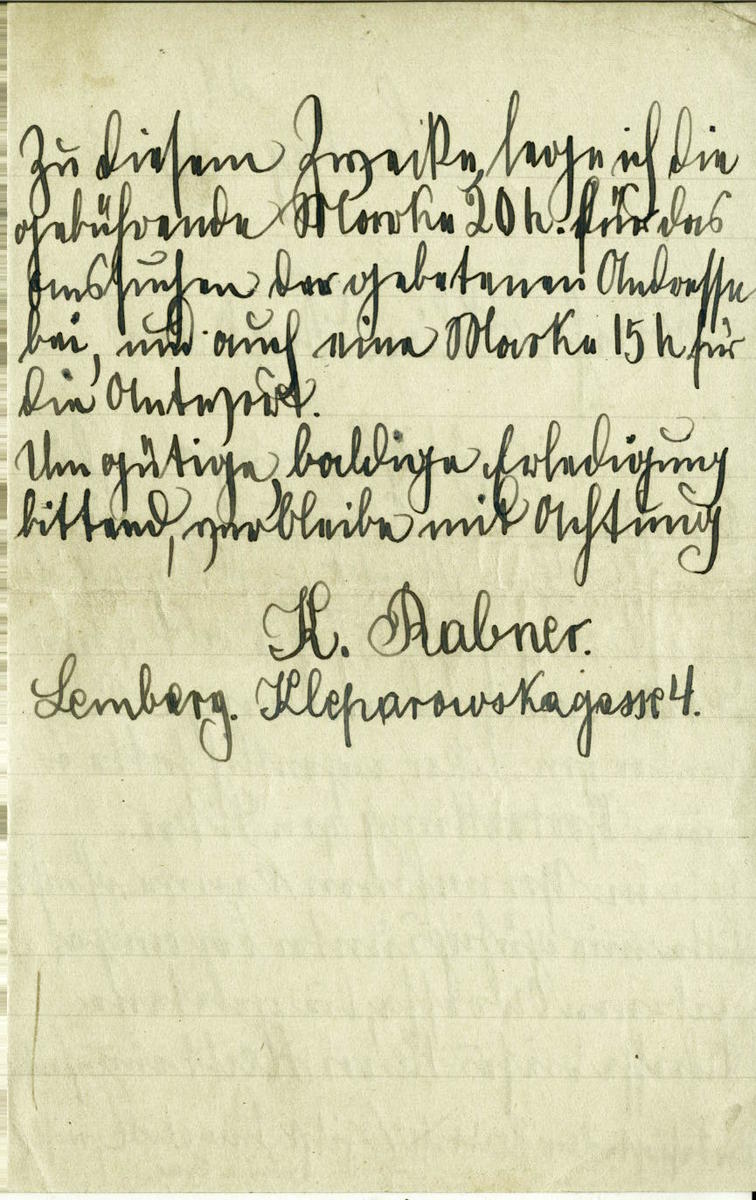 Zu diesem Zwecke, lege ich die
gebührende Marke 20 h. für das
Aussuchen der gebetenen Andresse
bei, und auch eine Marke 15 h für
die Antwort.
Um gütige, baldige Erledigung
bittend, verbleibe mit Achtung
K. Rabner.
Lemberg. Kleparowskagasse 4.